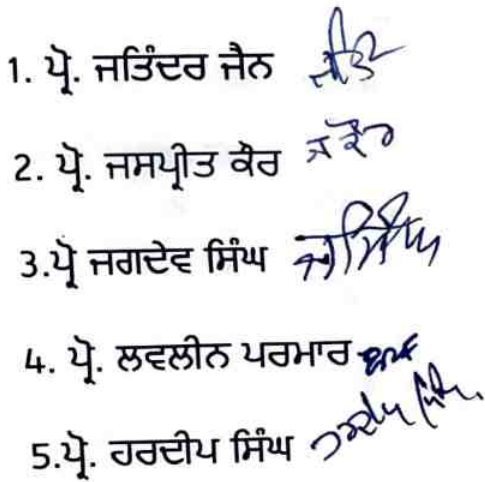 1. ਪ੍ਰੋ. ਜਤਿੰਦਰ ਜੈਨ
2. ਪ੍ਰੋ. ਜਸਪ੍ਰੀਤ ਕੌਰ ਜ ਕੌਰ
3.ਪ੍ਰੋ ਜਗਦੇਵ ਸਿੰਘ
4. ਪ੍ਰੋ. ਲਵਲੀਨ ਪਰਮਾਰ
5.ਪ੍ਰੋ. ਹਰਦੀਪ ਸਿੰਘ ਹਰਦੀਪ ਸਿੰਘ